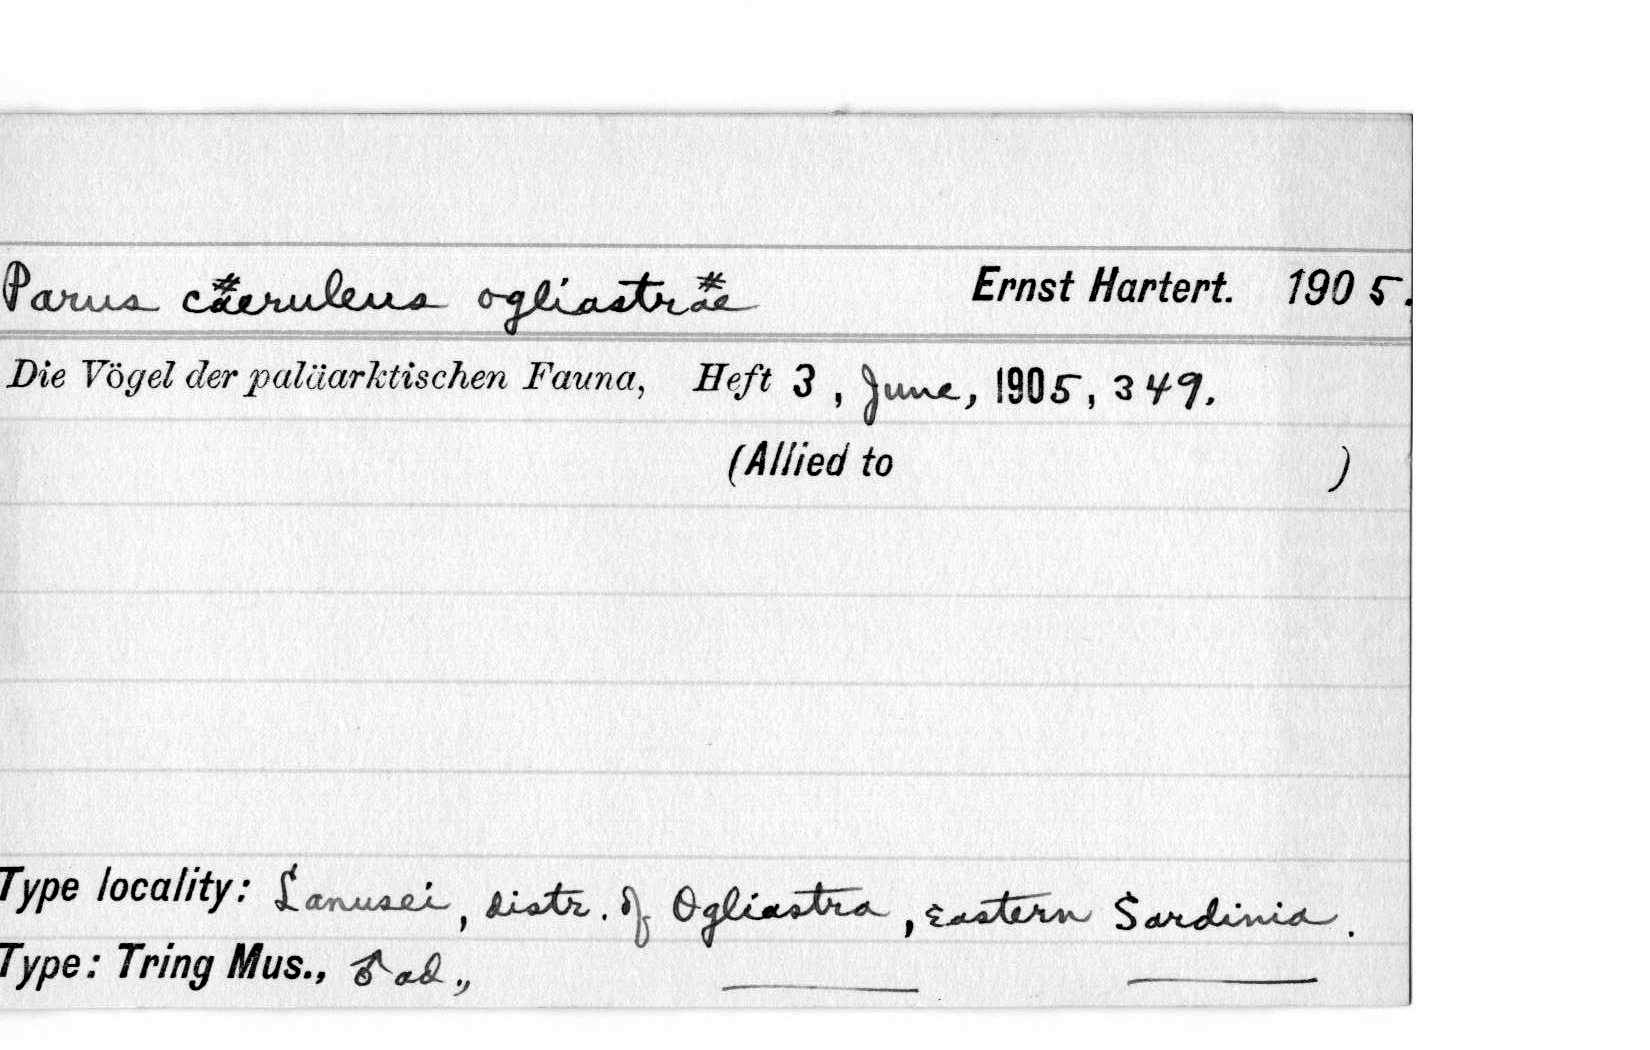 Parus caeruleus ogliastrae Ernst Hartert. 1905.
Die Vögel der paläarktischen Fauna, Heft 3, June, 1905, 349.
(Allied to )
Type locality: Lanusei, distr. of Ogliastra, eastern Sardinia.
Type: Tring Mus., ♂ ad.,